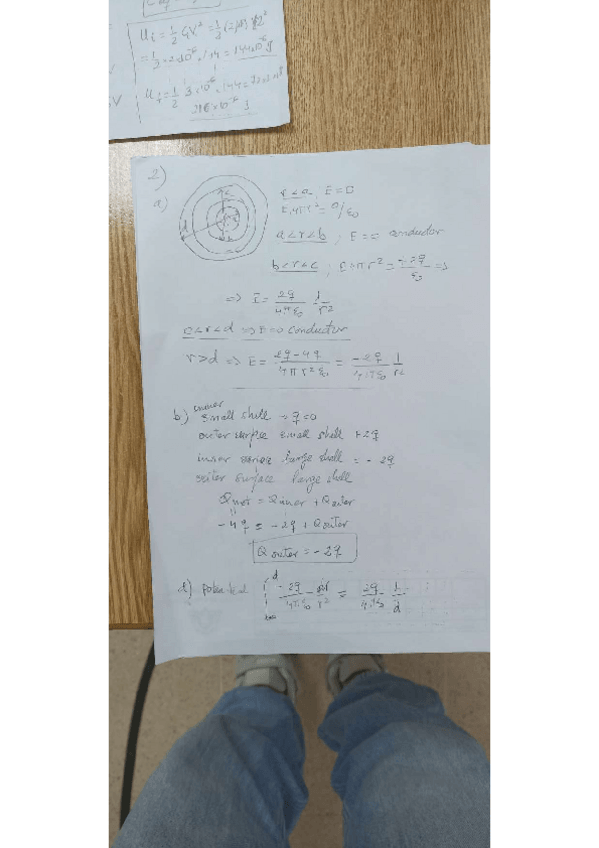 U i = 1/2 C V² =
= 144×10⁻⁶ J
U f = 1/2 3×10⁻⁶ × 144 =
216×10⁻⁶ J
2)
a)
r<a, E=0
E.4πr² = Q/ε₀
a<r<b ; E=0 conductor
b<r<c ; E.4πr² = +2q/ε₀ ⇒
⇒ E = 2q/4πε₀ 1/r²
c<r<d ⇒ E=0 conductor
r>d ⇒ E = 2q-4q/4πr²ε₀ = -2q/4πε₀ 1/r²
b) inner small shell → q=0
outer surface small shell +2q
inner surface large shell = -2q
outer surface large shell
Q net = Q inner + Q outer
-4q = -2q + Q outer
Q outer = -2q
d) Potential ∫ d -2q/4πε₀ dr/r² = 2q/4πε₀ 1/d